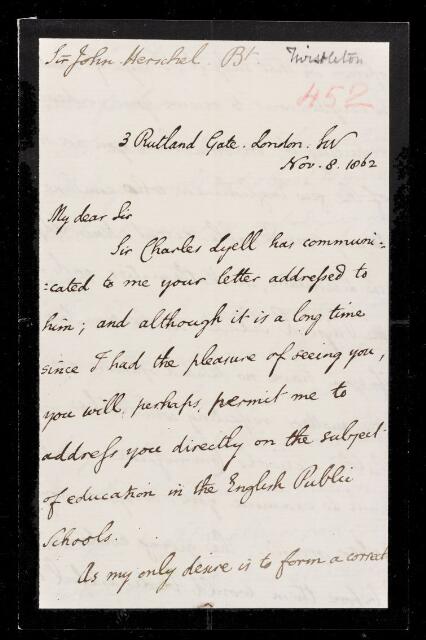 Sir John Herschel. Bt.
Twistleton
452
3 Rutland Gate. London. SW
Nov. 8. 1862
My dear Sir
Sir Charles Lyell has communi-
-cated to me your letter addressed to
him; and although it is a long time
since I had the pleasure of seeing you,
you will, perhaps, permit me to
address you directly on the subject
of education in the English Public
Schools.
As my only desire is to form a correct